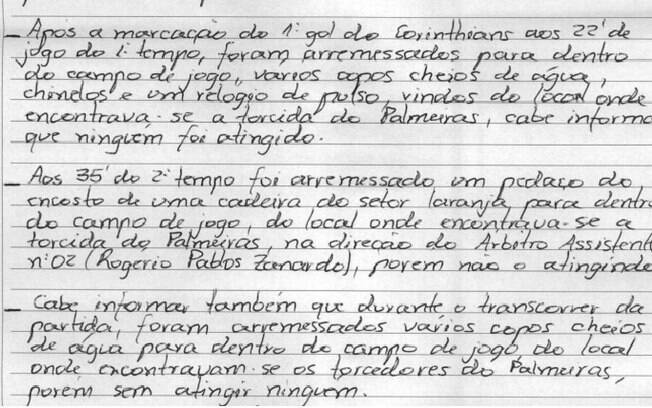 - Após a marcação do 1º gol do Corinthians aos 22' de
jogo do 1º tempo, foram arremessados para dentro
do campo de jogo, varios copos cheios de água,
chinelos e um relogio de pulso, vindos do local onde
encontrava-se a torcida do Palmeiras, cabe informa
que ninguém foi atingido.
- Aos 35' do 2º tempo foi arremessado um pedaço do
encosto de uma cadeira do setor laranja para dentro
do campo de jogo, do local onde encontrava-se a
torcida do Palmeiras, na direção do Arbitro Assistent
nº02 (Rogerio Pablos Zanardo), porem não o atingindo
- Cabe informar também que durante o transcorrer da
partida, foram arremessados varios copos cheios
de água para dentro do campo de jogo, do local
onde encontravam-se os torcedores do Palmeiras,
porém sem atingir ninguem.